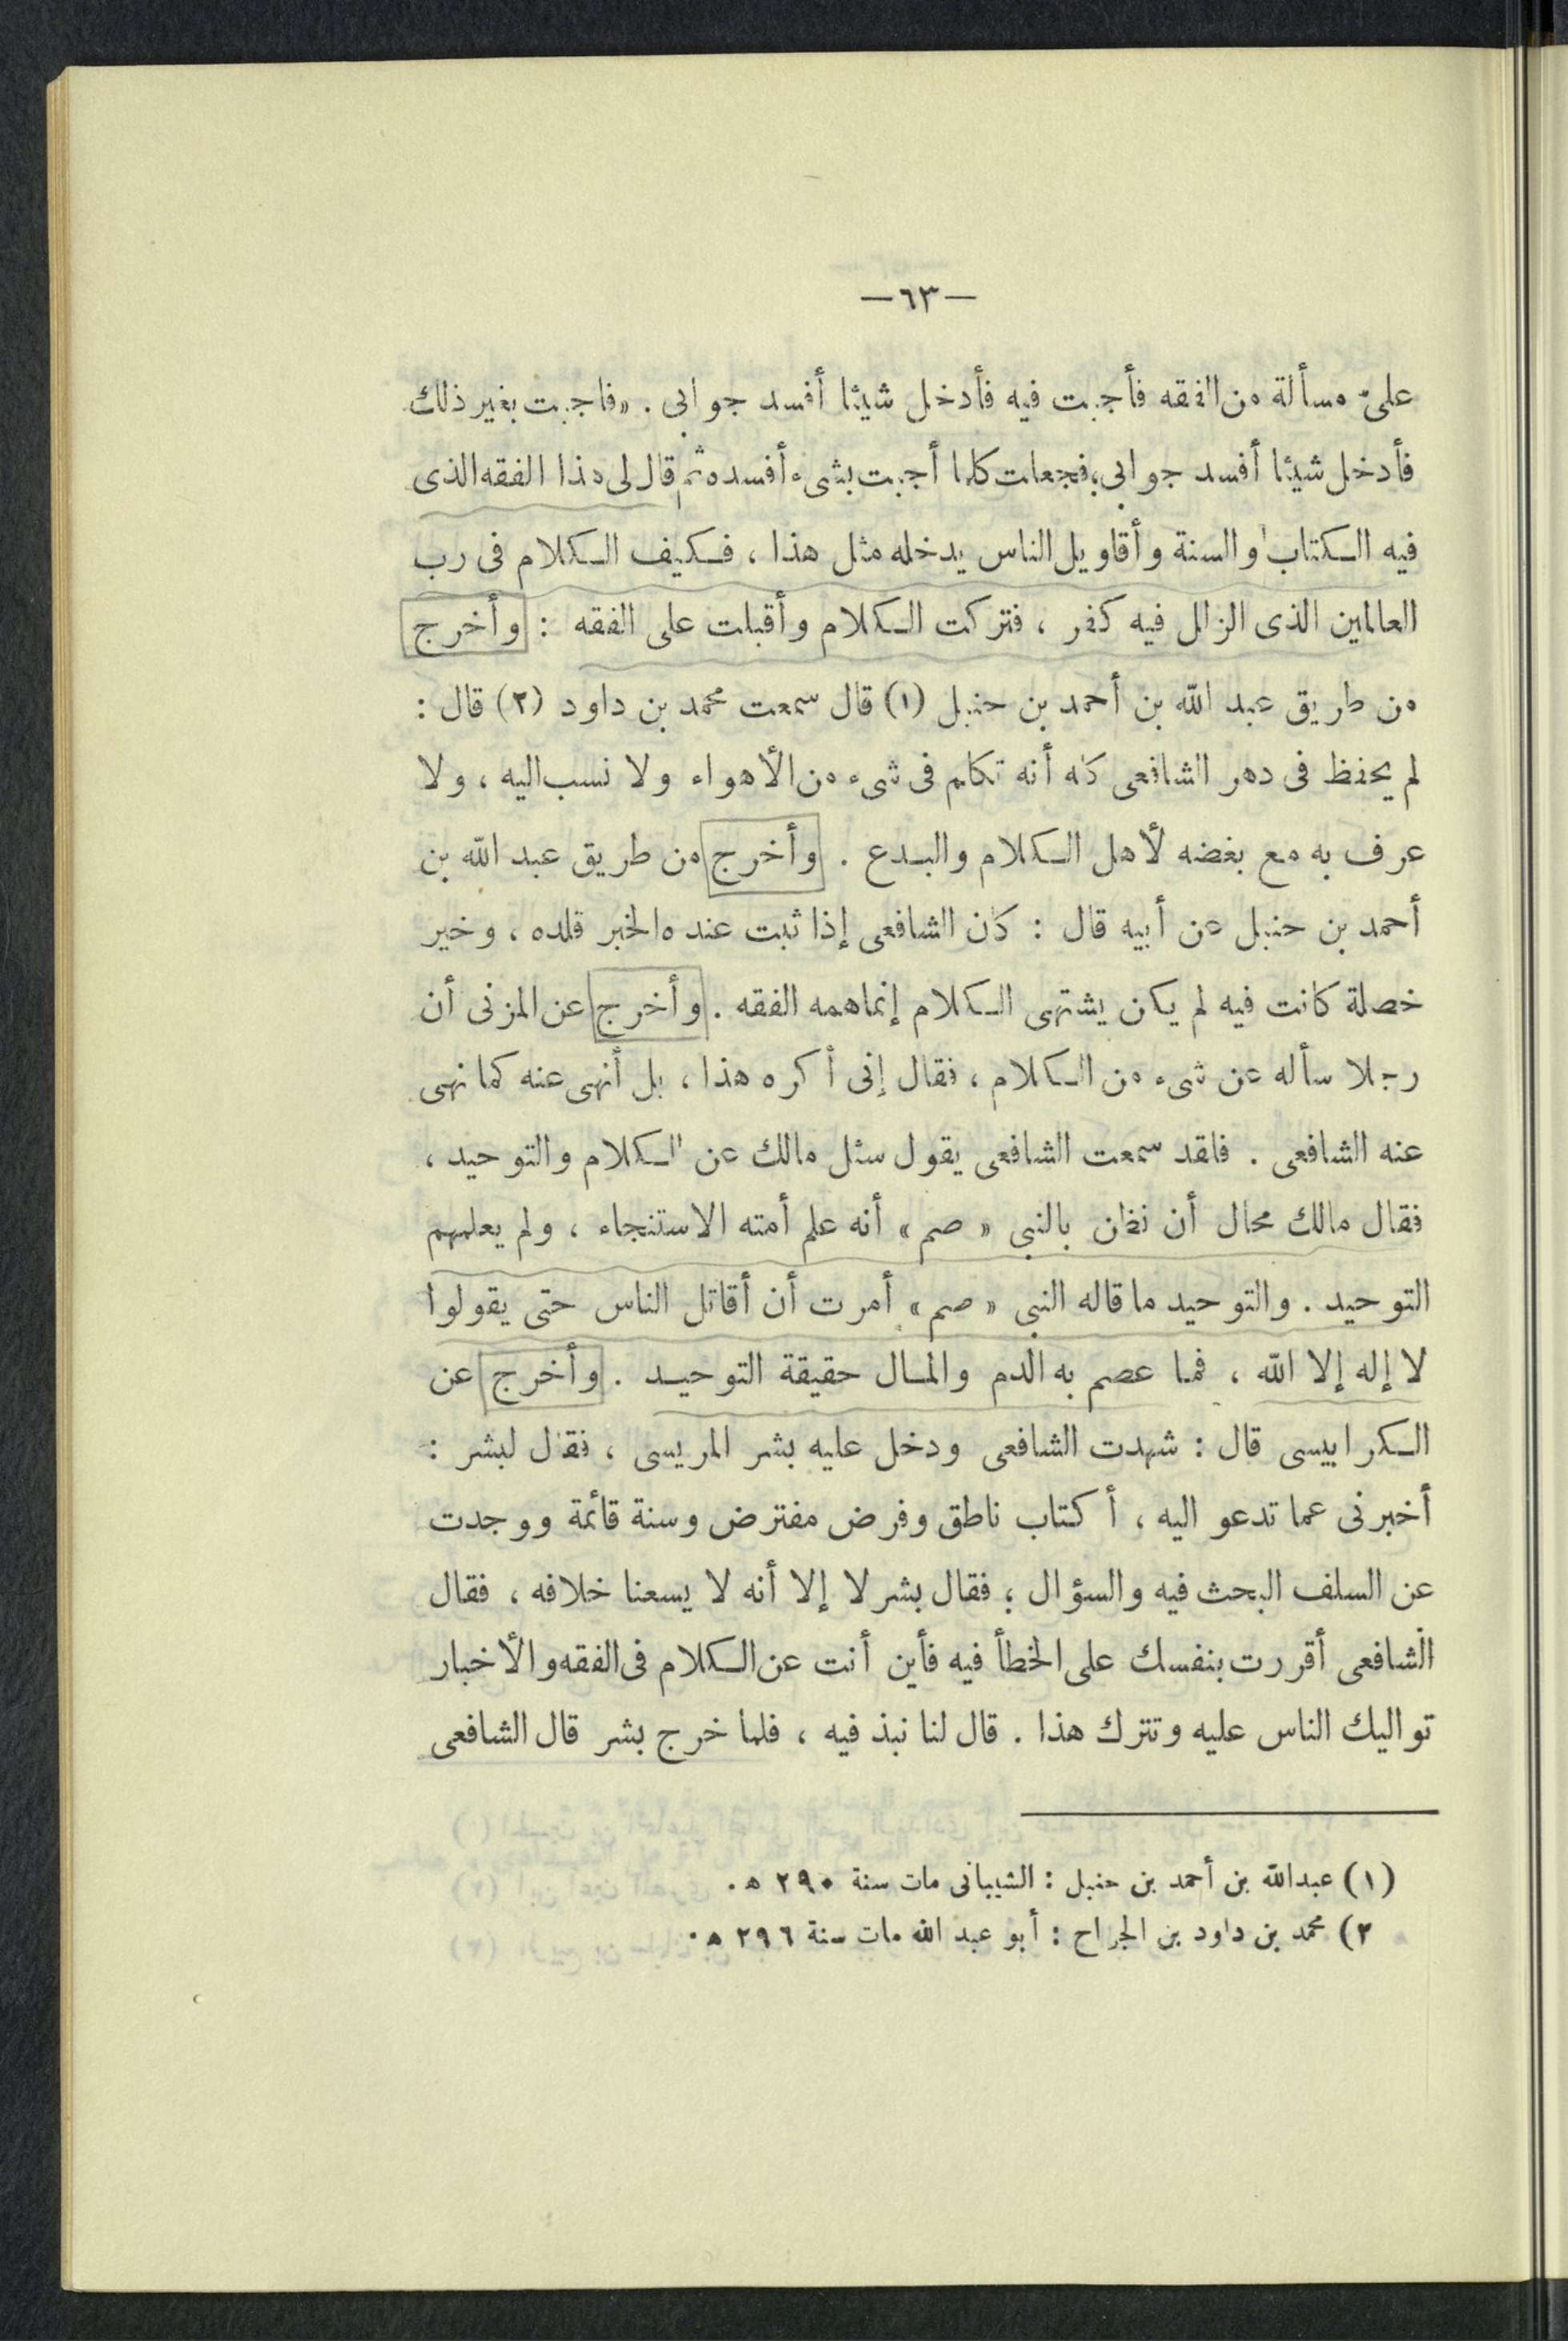 —٦٣—
علىّ مسألة من الفقه فأجبت فيه فأدخل شيئا أفسد جوابى . «فاجبت بغير ذلك
فأدخل شيئا أفسد جوابى، فجعلت كلما أجبت بشىء أفسده ثم قال لى هذا الفقه الذى
فيه الكتاب والسنة وأقاويل الناس يدخله مثل هذا ، فكيف الكلام فى رب
العالمين الذى الزلل فيه كفر ، فتركت الكلام وأقبلت على الفقه : وأخرج
من طريق عبد الله بن أحمد بن حنبل (١) قال سمعت محمد بن داود (٢) قال :
لم يحفظ فى دهر الشافعى كله أنه تكلم فى شىء من الأهواء ولا نسب اليه ، ولا
عرف به مع بغضه لأهل الكلام والبدع . وأخرج من طريق عبد الله بن
أحمد بن حنبل عن أبيه قال : كان الشافعى إذا ثبت عنده الخبر قلده ، وخير
خصلة كانت فيه لم يكن يشتهى الكلام إنما همه الفقه . وأخرج عن المزنى أن
رجلا سأله عن شىء من الكلام ، فقال إنى أكره هذا ، بل أنهى عنه كما نهى
عنه الشافعى . فلقد سمعت الشافعى يقول سئل مالك عن الكلام والتوحيد ،
فقال مالك محال أن نظن بالنبى « صم » أنه علم أمته الاستنجاء ، ولم يعلمهم
التوحيد . والتوحيد ما قاله النبى « صم » أمرت أن أقاتل الناس حتى يقولوا
لا إله إلا الله ، فما عصم به الدم والمال حقيقة التوحيد . وأخرج عن
الكرابيسى قال : شهدت الشافعى ودخل عليه بشر المريسى ، فقال لبشر :
أخبرنى عما تدعو اليه ، أكتاب ناطق وفرض مفترض وسنة قائمة ووجدت
عن السلف البحث فيه والسؤال ؛ فقال بشر لا إلا أنه لا يسعنا خلافه ، فقال
الشافعى أقررت بنفسك على الخطأ فيه فأين أنت عن الكلام فى الفقه والأخبار
تواليك الناس عليه وتترك هذا . قال لنا نبذ فيه ، فلما خرج بشر قال الشافعى
(١) عبد الله بن أحمد بن حنبل : الشيبانى مات سنة ٢٩٠ ه .
٢) محمد بن داود بن الجراح : أبو عبد الله مات سنة ٢٩٦ ه .